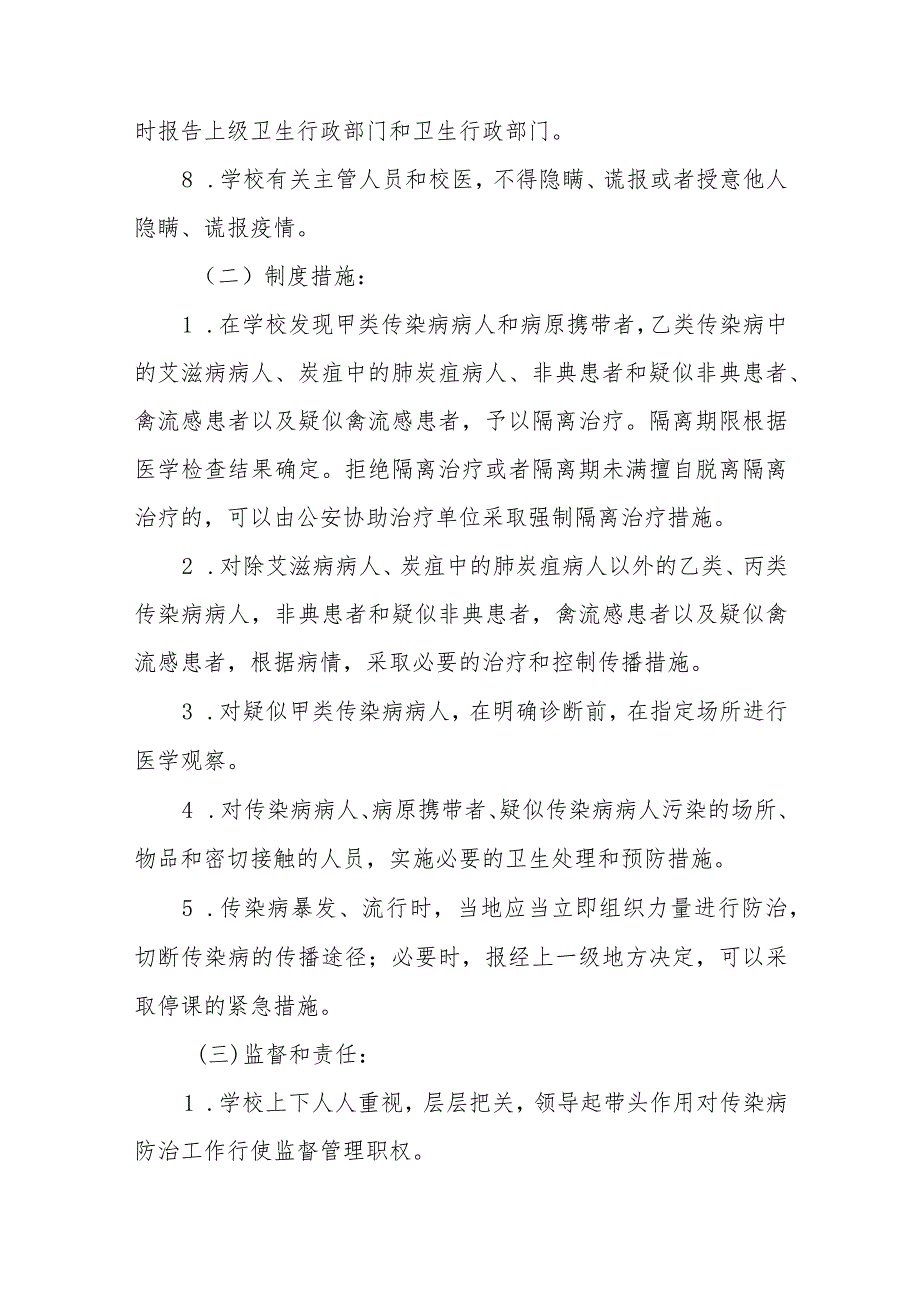 时报告上级卫生行政部门和卫生行政部门。
8 .学校有关主管人员和校医，不得隐瞒、谎报或者授意他人
隐瞒、谎报疫情。
（二）制度措施：
1 .在学校发现甲类传染病病人和病原携带者，乙类传染病中
的艾滋病病人、炭疽中的肺炭疽病人、非典患者和疑似非典患者、
禽流感患者以及疑似禽流感患者，予以隔离治疗。隔离期限根据
医学检查结果确定。拒绝隔离治疗或者隔离期未满擅自脱离隔离
治疗的，可以由公安协助治疗单位采取强制隔离治疗措施。
2 .对除艾滋病病人、炭疽中的肺炭疽病人以外的乙类、丙类
传染病病人，非典患者和疑似非典患者，禽流感患者以及疑似禽
流感患者，根据病情，采取必要的治疗和控制传播措施。
3 .对疑似甲类传染病病人，在明确诊断前，在指定场所进行
医学观察。
4 .对传染病病人、病原携带者、疑似传染病病人污染的场所、
物品和密切接触的人员，实施必要的卫生处理和预防措施。
5 .传染病暴发、流行时，当地应当立即组织力量进行防治，
切断传染病的传播途径；必要时，报经上一级地方决定，可以采
取停课的紧急措施。
(三)监督和责任：
1 .学校上下人人重视，层层把关，领导起带头作用对传染病
防治工作行使监督管理职权。